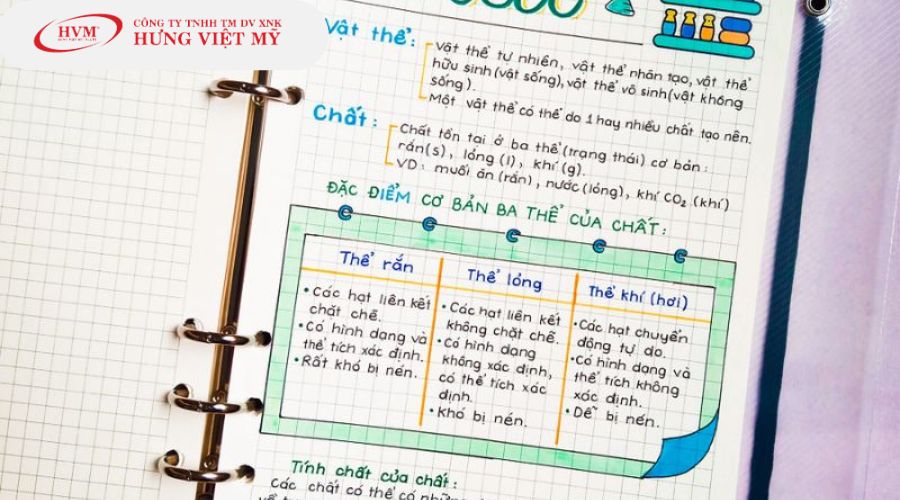 HVM
CÔNG TY TNHH TM DV XNK
HƯNG VIỆT MỸ
Vật thể:
Vật thể tự nhiên, vật thể nhân tạo, vật thể
hữu sinh (vật sống), vật thể vô sinh (vật không
sống).
Một vật thể có thể do 1 hay nhiều chất tạo nên.
Chất:
Chất tồn tại ở ba thể (trạng thái) cơ bản:
rắn(s), lỏng (l), khí (g).
VD: muối ăn (rắn), nước (lỏng), khí CO₂ (khí)
ĐẶC ĐIỂM CƠ BẢN BA THỂ CỦA CHẤT:
Thể rắn
• Các hạt liên kết
chặt chẽ.
• Có hình dạng và
thể tích xác định.
• Rất khó bị nén.
Thể lỏng
• Các hạt liên kết
không chặt chẽ.
• Có hình dạng
không xác định,
có thể tích xác
định.
• Khó bị nén.
Thể khí (hơi)
• Các hạt chuyển
động tự do.
• Có hình dạng và
thể tích không
xác định.
• Dễ bị nén.
Tính chất của chất:
Các chất có thể có những